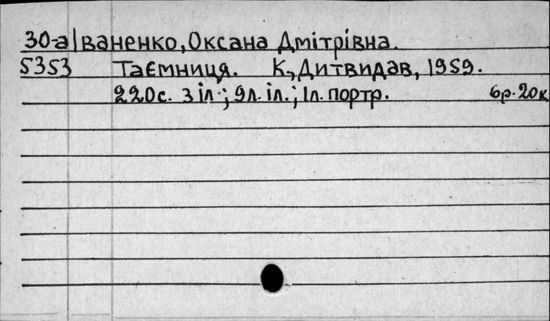 30-а Іваненко, Оксана Дмітрівна.
5353 Таємниця. К, Дитвидав, 1959.
220с. з іл.; 9л. іл.; 1л. портр. 6р. 20к